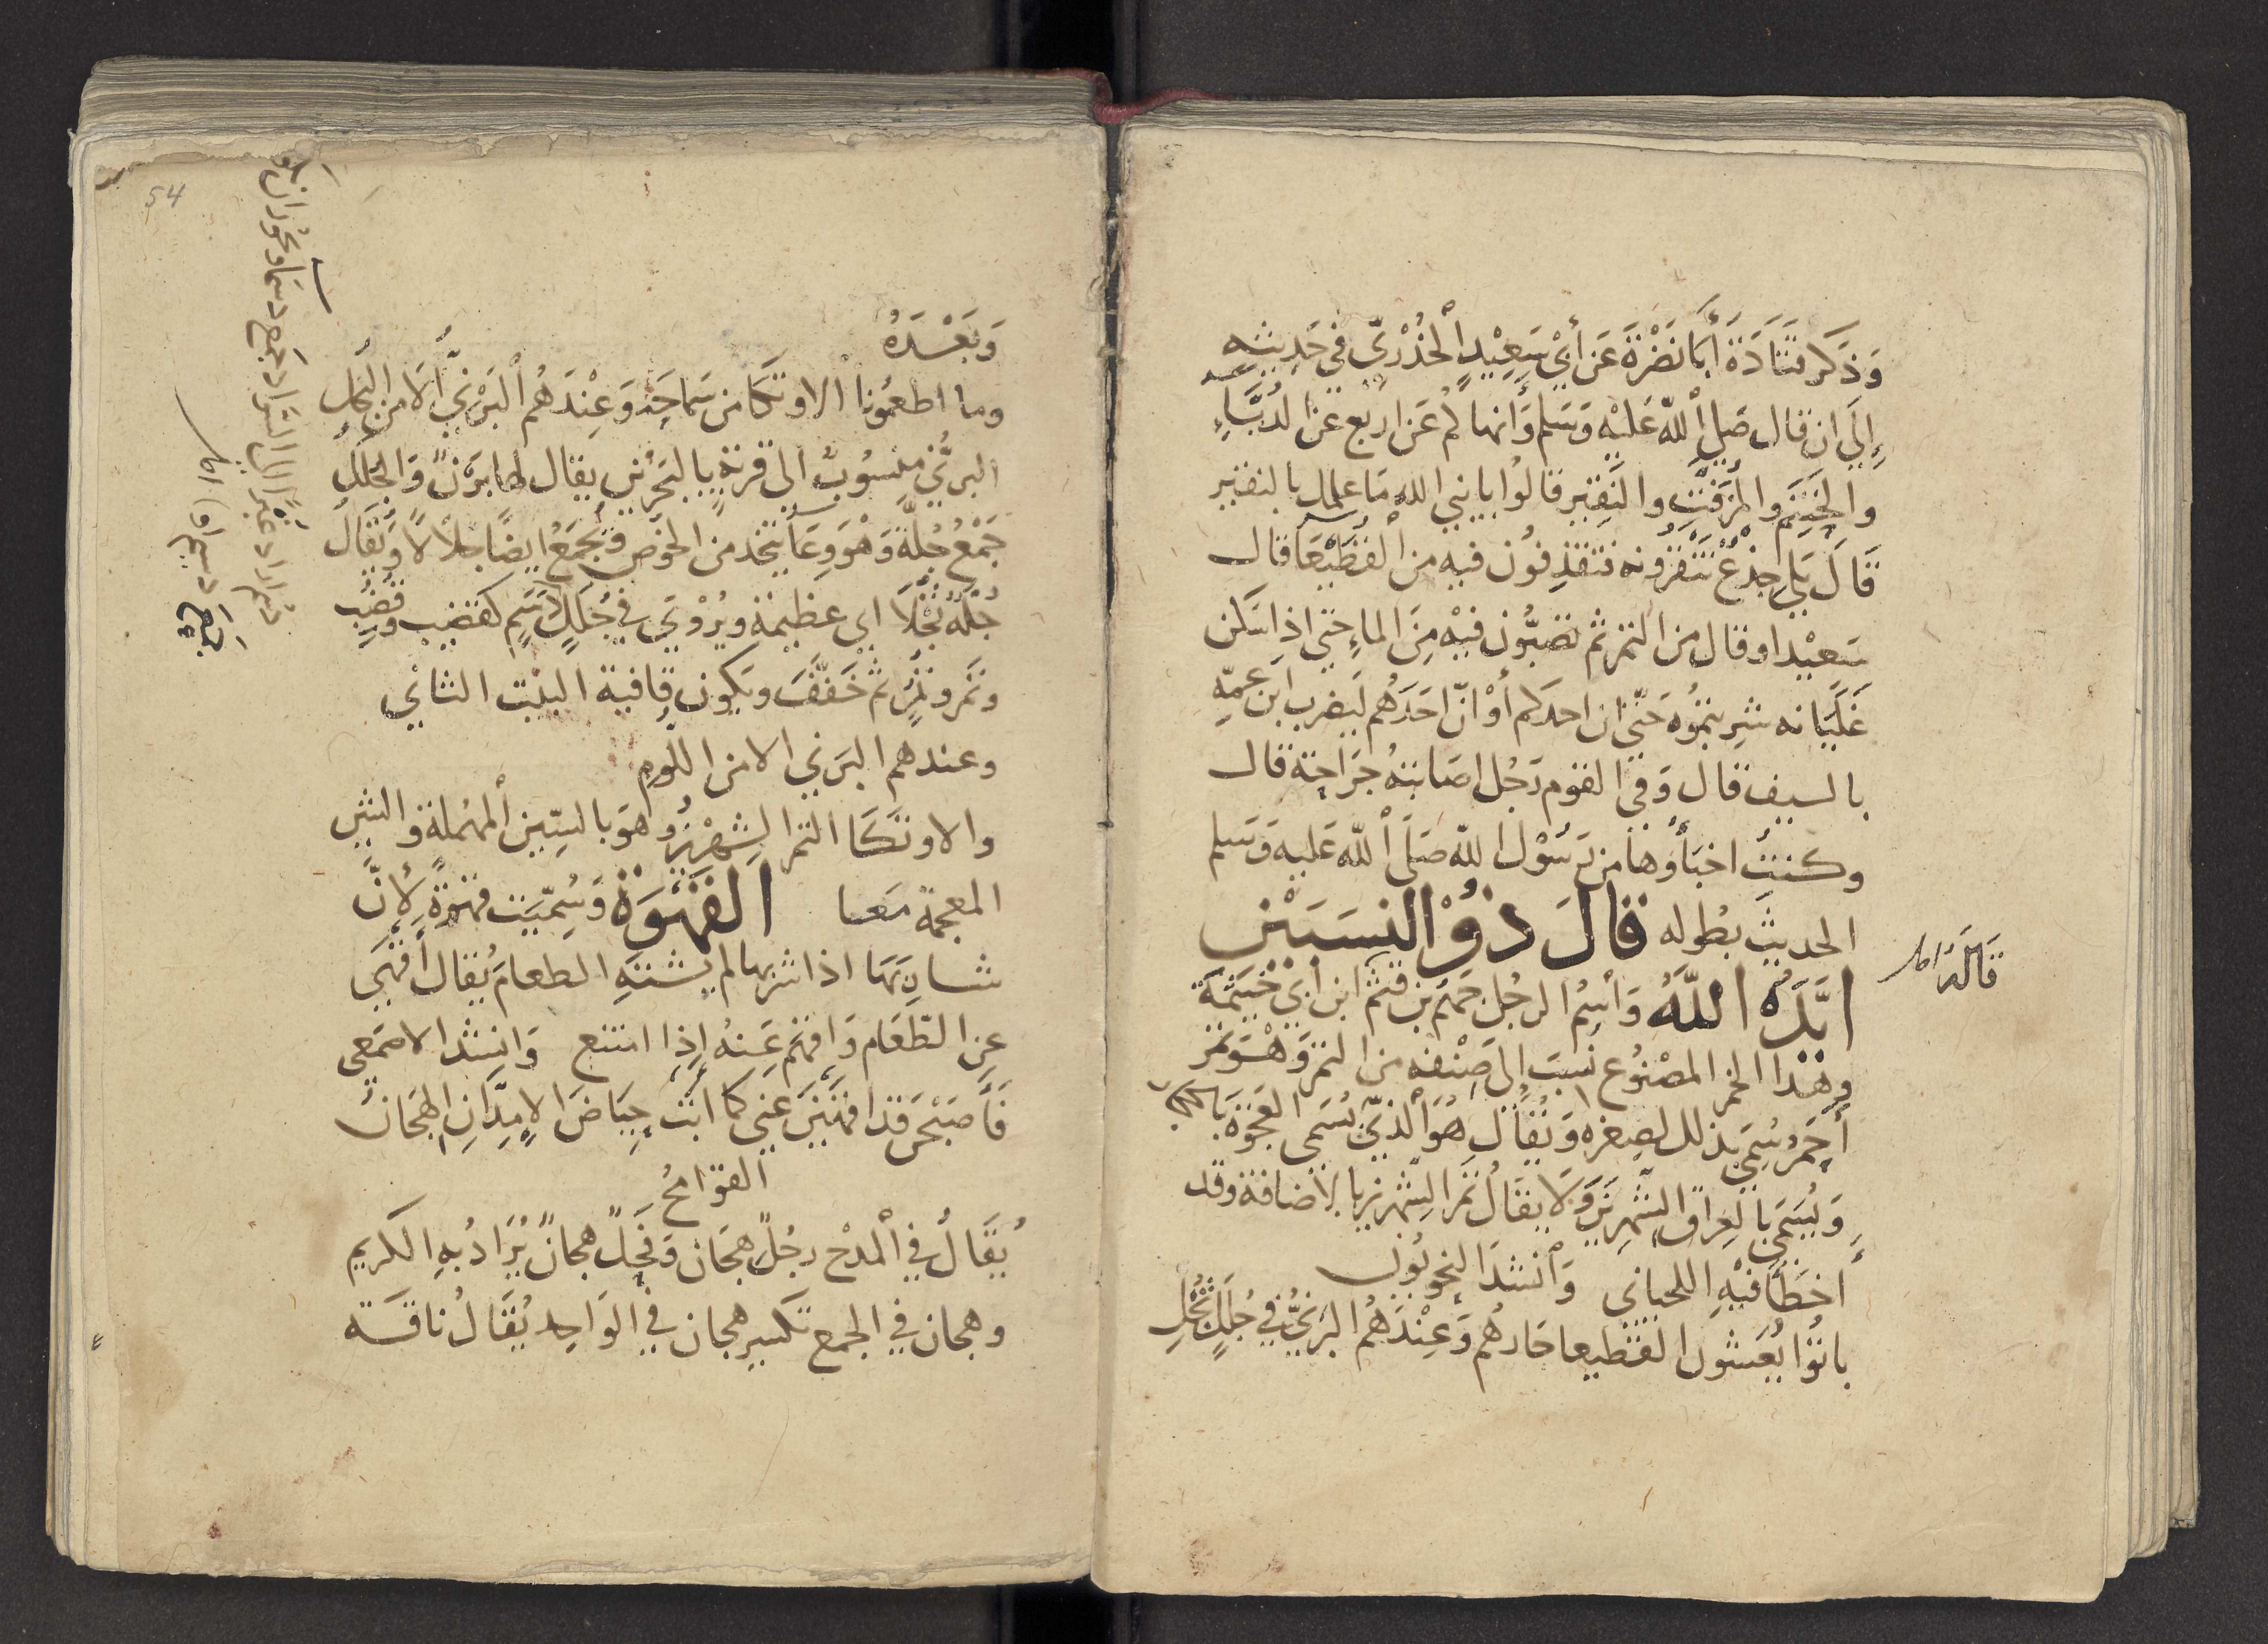 وَذَكَر قتَادَة أبَا نَضْرَةَ عَن أبي سَعِيْدٍ الْخُدْرِيّ في حَدِيثِه
إِلَى ان قال صَلى اللّه عَلَيْه وَسَلم وَأنهاكُم عَن اربع عَن الدُّبَّاءِ
والحَنتَم والمُزَفّتِ والنَقِير قالوُا يا نبي الله مَا علمك بالنقير
قَالَ بَلى جِذْعٌ تَنْقُرُونه فتقذِفوُن فيه من القُطَيْعَا قال
سَعيْد او قال من التمر ثم تصُبُّون فيْه مِنَ الماءِ حَتى اذا سَكن
غَلَيَانه شرِبتمُوه حَتّى ان احدكم أوْ انّ احَدَهُم ليَضرب ابن عمّهِ
بالسيف قال وَفي القوم رَجُل اصَابتهُ جرَاحة قال
وكنتُ اخبَأوُهَا من رَسُوْل اللّه صَلى اللّه عَليه وَسَلم
الحديث بطوله قالَ ذوُ النسَبَيْن
ايَّدَهُ اللَّهُ وَاسْمُ الرجُل جَهْم بن قثم ابن أبي خَيثمَة
وهَذا الخمر المصْنوُع نسبَت إلى صِنْفه من التمر وَهْوَ تمر
أحمَرُ سُمِّيَ بذلك لصِغرِه وَيُقال هُوَ الذّي يُسَمى العَجْوَة
وَيُسَمى بالعِراق الشّهرِيز وَلَا يقالُ تمر الشِهريز بالاضافة وقد
أخطَأ فيْهِ اللحياني وَأنشدَ النحويُون
باتوُا يُعَشون القطيعا جَارهُم وَعِنْدَهُم البَرنيُّ في جُلَلٍ ثُجْلِ
قَالَهُ
وَبَعْدَهُ
وما اطعمُونا الاوتكَا من سَمَاحَةٍ وَعِنْدَهُم البَرْنيّ إلَّا من البُخلِ
البرنيّ منسُوبٌ الى قرية بالبَحْرين يقال لها بَرْن وَالجُلَلُ
جَمْعُ جُلّة وَهْوَ وعَاء يتخذ من الخوْص وَيُجمَعُ ايضًا جلالًا وَيُقَال
جُلّةٌ ثَجْلَاءُ اي عظيمَة ويُرْوَى في جُلَلٍ دُسْمٍ كقضيب وقُضُبٍ
ونَمر ونُمُرٍ ثم خَفّفَ ويكون قافية البيْت الثاني
وعندهم البَرني الا من اللُّوم
والاوتكَا التمر الشِهرِيزُ وهوَ بالسِّين المُهْمَلة والشِين
المعجمة مَعا القَهْوَة وَسُمّيَت قهوَةً لأنَّ
شاربَهَا اذا شربها لم يشتهِ الطعامَ يُقال أقهَى
عن الطّعَام وَاقهَم عَنهُ إذا امتنع وَانشد الاصمَعي
فَأصبَحْنَ قد اقهَيْنَ عَني كما أبَتْ حِيَاضَ الامِدّانِ الهجَان
القوَامحُ
يُقَالُ في المدْح رجُلٌ هجَان وَفَحْلٌ هجانٌ يُرَادُ بهِ الكريم
وهجان في الجمع تكسير هجان في الوَاحِد يُقَالُ ناقَة
54